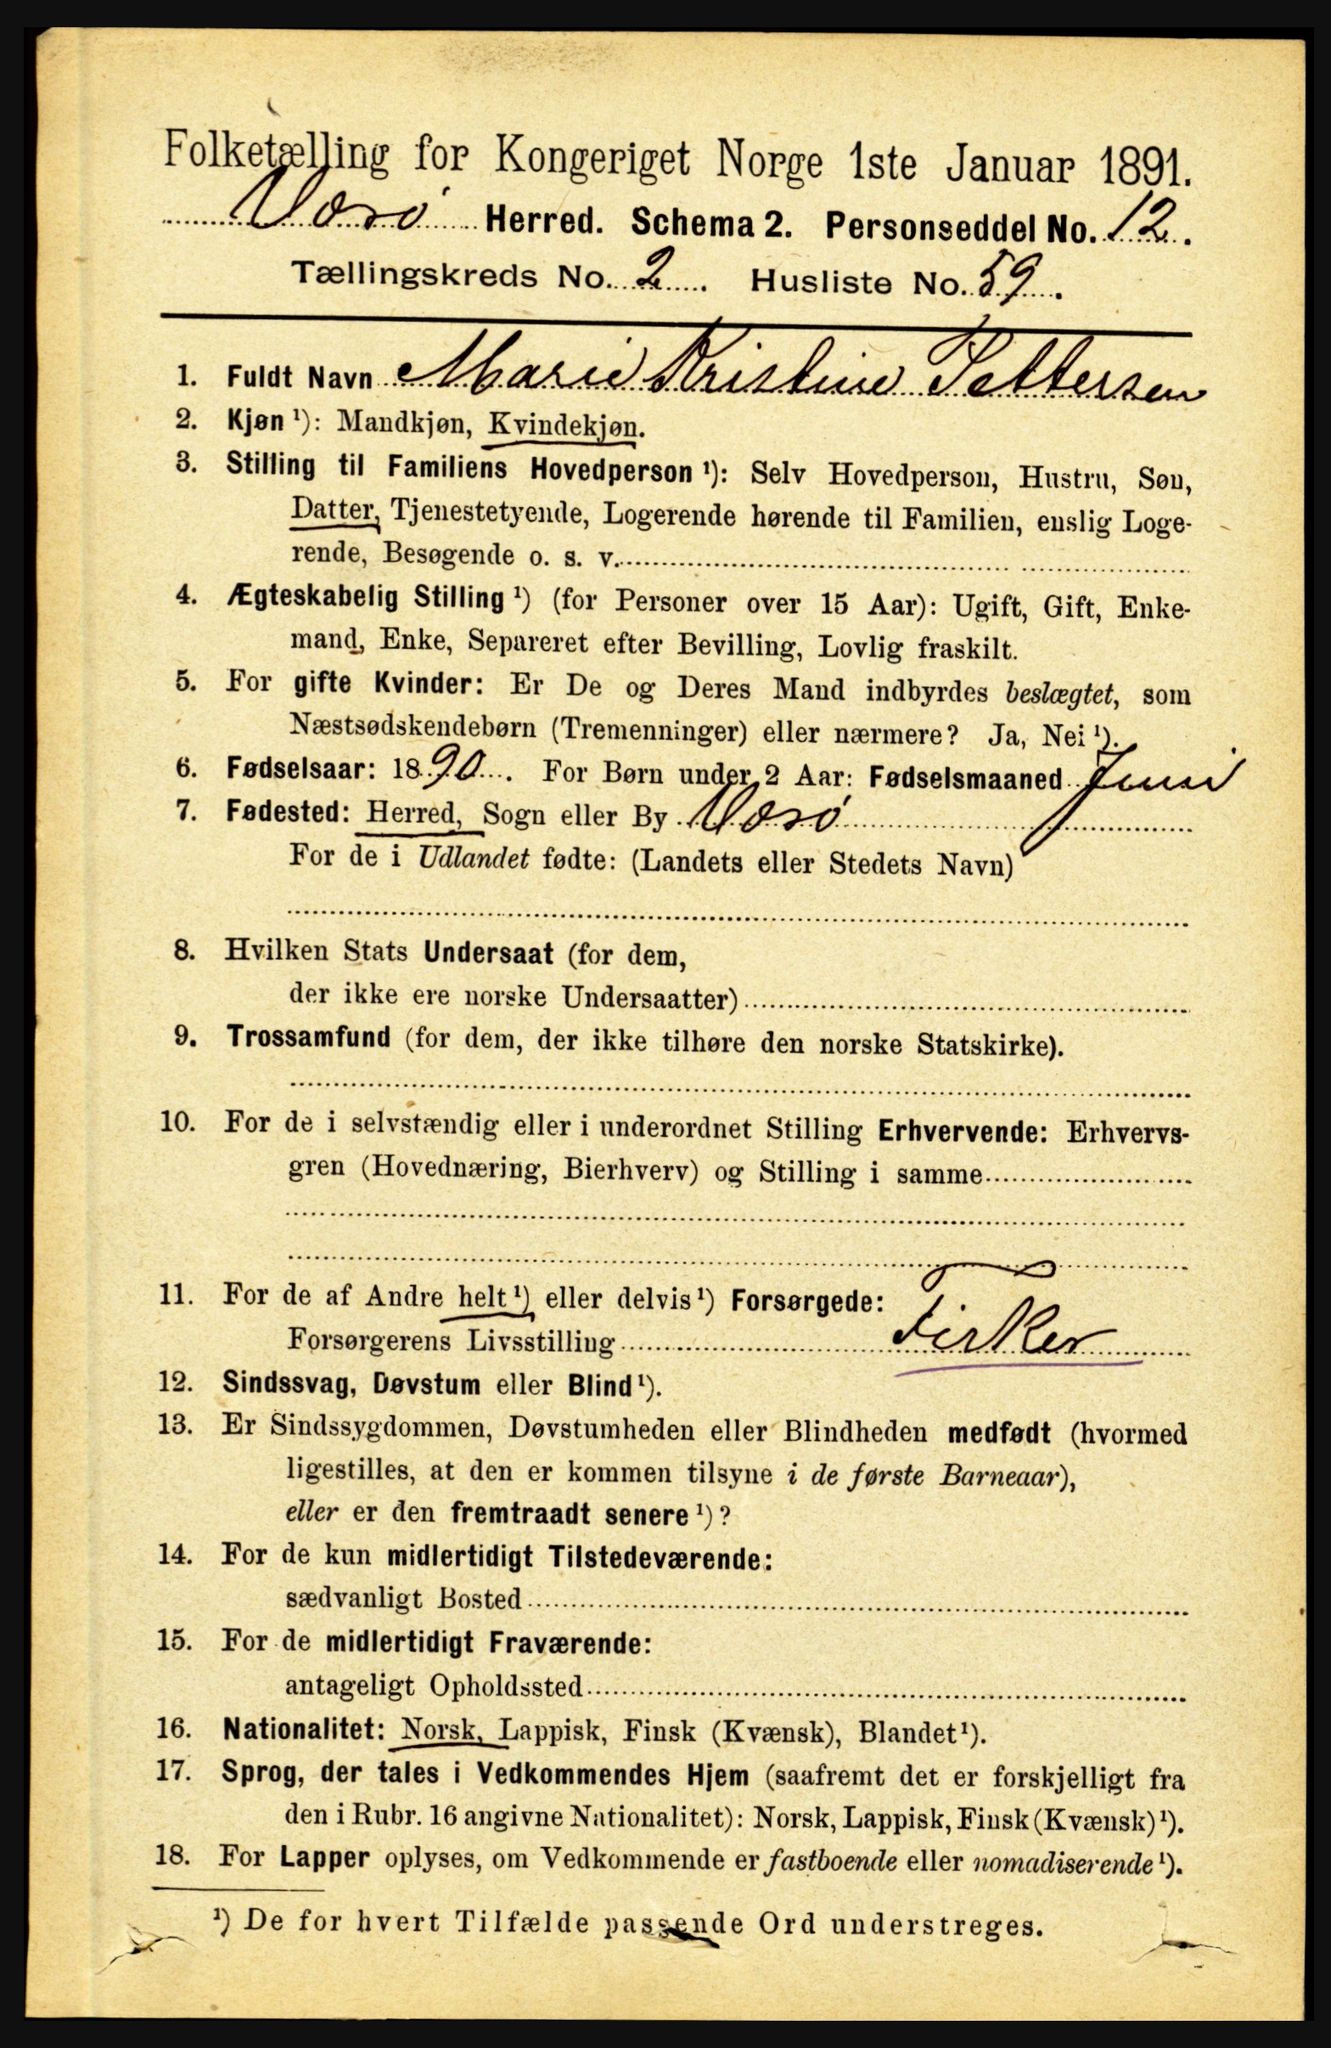 Folketælling for Kongeriget Norge 1ste Januar 1891.
Værø Herred. Schema 2. Personseddel No. 12.
Tællingskreds No. 2. Husliste No. 59.
1. Fuldt Navn Marie Kristine Pettersen
2. Kjøn ¹): Mandkjøn, Kvindekjøn.
3. Stilling til Familiens Hovedperson ¹): Selv Hovedperson, Hustru, Søn,
Datter, Tjenestetyende, Logerende hørende til Familien, enslig Loge-
rende, Besøgende o. s. v.
4. Ægteskabelig Stilling ¹) (for Personer over 15 Aar): Ugift, Gift, Enke-
mand, Enke, Separeret efter Bevilling, Lovlig fraskilt.
5. For gifte Kvinder: Er De og Deres Mand indbyrdes beslægtet, som
Næstsødskendebørn (Tremenninger) eller nærmere? Ja, Nei ¹).
6. Fødselsaar: 1890. For Børn under 2 Aar: Fødselsmaaned Juni
7. Fødested: Herred, Sogn eller By Værø
For de i Udlandet fødte: (Landets eller Stedets Navn)
8. Hvilken Stats Undersaat (for dem,
der ikke ere norske Undersaatter)
9. Trossamfund (for dem, der ikke tilhøre den norske Statskirke).
10. For de i selvstændig eller i underordnet Stilling Erhvervende: Erhvervs-
gren (Hovednæring, Bierhverv) og Stilling i samme
11. For de af Andre helt ¹) eller delvis ¹) Forsørgede:
Forsørgerens Livsstilling Fisker
12. Sindssvag, Døvstum eller Blind ¹).
13. Er Sindssygdommen, Døvstumheden eller Blindheden medfødt (hvormed
ligestilles, at den er kommen tilsyne i de første Barneaar),
eller er den fremtraadt senere ¹)?
14. For de kun midlertidigt Tilstedeværende:
sædvanligt Bosted
15. For de midlertidigt Fraværende:
antageligt Opholdssted
16. Nationalitet: Norsk, Lappisk, Finsk (Kvænsk), Blandet ¹).
17. Sprog, der tales i Vedkommendes Hjem (saafremt det er forskjelligt fra
den i Rubr. 16 angivne Nationalitet): Norsk, Lappisk, Finsk (Kvænsk) ¹).
18. For Lapper oplyses, om Vedkommende er fastboende eller nomadiserende ¹).
¹) De for hvert Tilfælde passende Ord understreges.